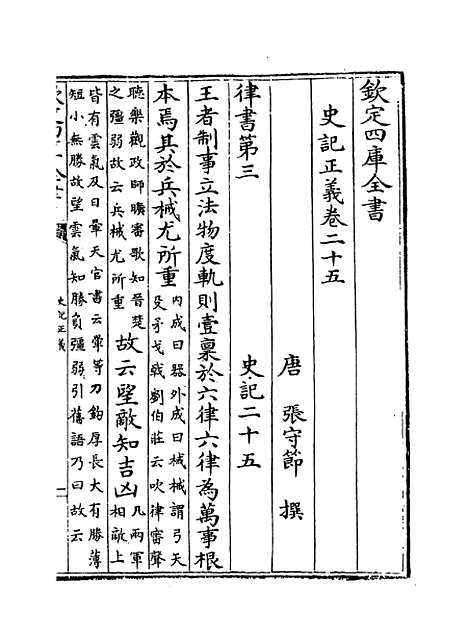 欽定四庫全書
史記正義卷二十五
唐 張守節 撰
律書第三 史記二十五
王者制事立法物度軌則壹稟於六律六律為萬事根
本焉其於兵械尤所重内成曰器外成曰械械謂弓矢
殳矛戈戟劉伯莊云吹律審聲
聽樂觀政師曠審歌知晉楚
之彊弱故云兵械尤所重故云望敵知吉凶凡兩軍
相敵上
皆有雲氣及日暈天官書云暈等力鈞厚長大有勝薄
短小無勝故望雲氣知勝負彊弱引舊語乃曰故云
史記正義
一